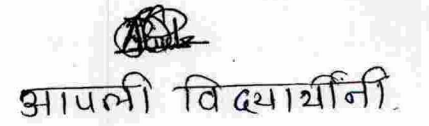 आपली विद्यार्थीनी.